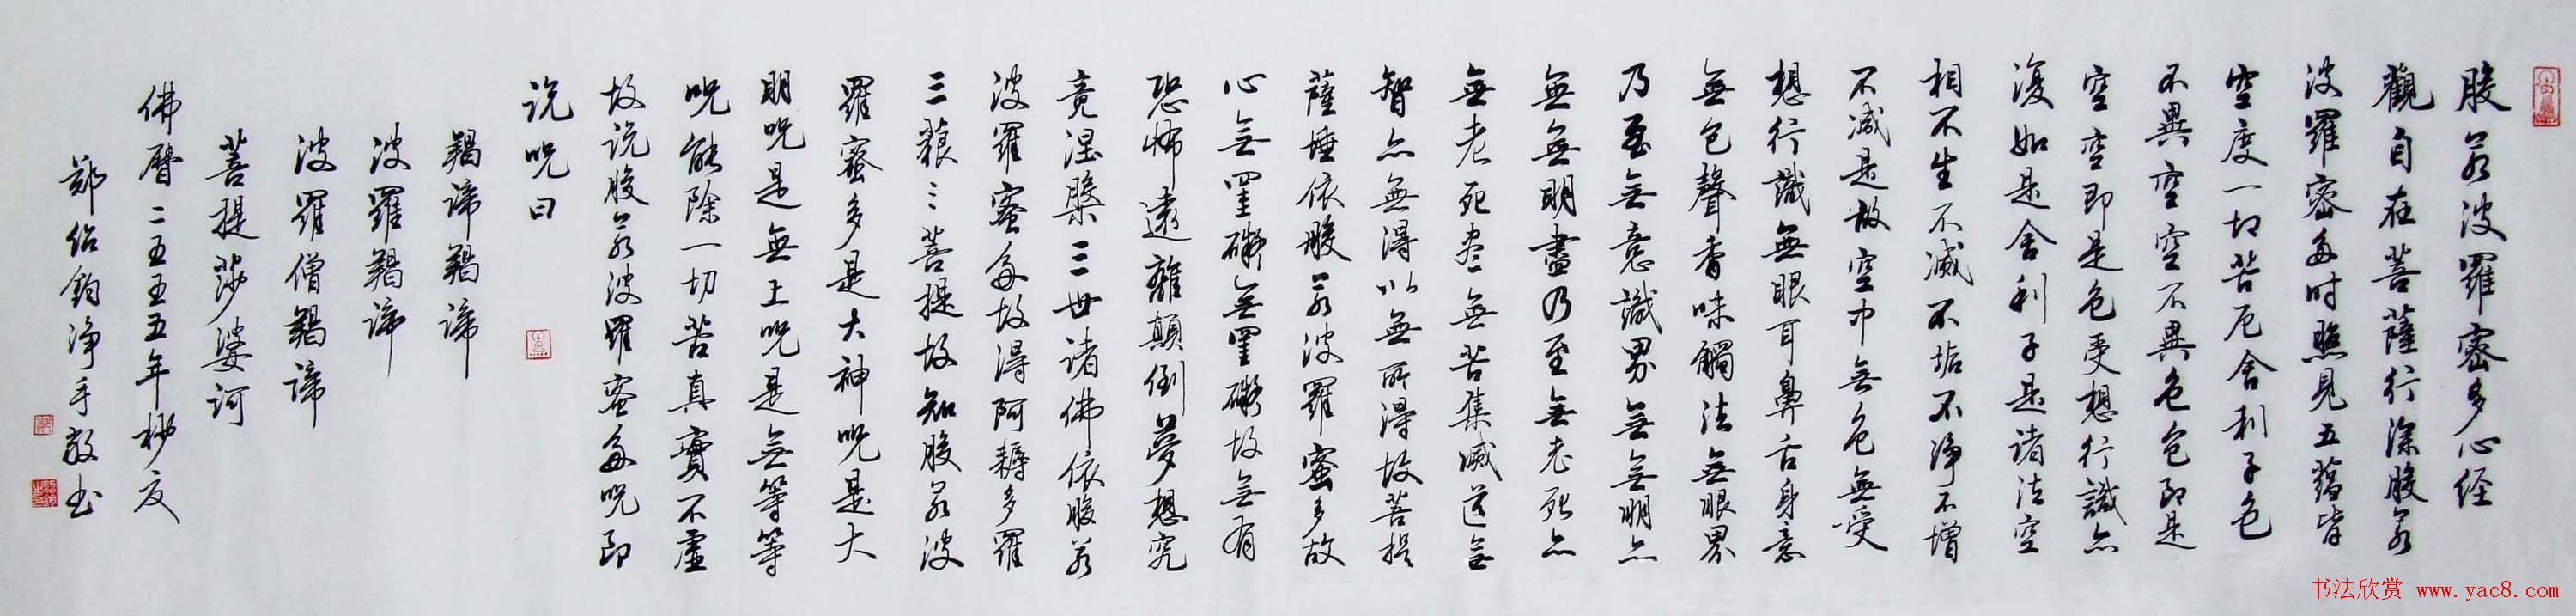 般若波羅密多心经
觀自在菩薩行深般若
波羅密多时照見五蕴皆
空度一切苦厄舍利子色
不異空空不異色色即是
空空即是色受想行識亦
復如是舍利子是诸法空
相不生不滅不垢不淨不增
不減是故空中無色無受
想行識無眼耳鼻舌身意
無色聲香味觸法無眼界
乃至無意識界無無明亦
無無明盡乃至無老死亦
無老死盡無苦集滅道無
智亦無得以無所得故菩提
薩埵依般若波羅蜜多故
心無罣礙無罣礙故無有
恐怖遠離顛倒夢想究
竟涅槃三世诸佛依般若
波羅蜜多故得阿耨多羅
三藐三菩提故知般若波
羅蜜多是大神呪是大
明呪是無上呪是無等等
呪能除一切苦真實不虛
故说般若波羅蜜多呪即
说呪曰
羯谛羯谛
波羅羯谛
波羅僧羯谛
菩提莎婆訶
佛曆二五五五年秒夏
郑绍钧淨手敬书
书法欣赏 www.yac8.com